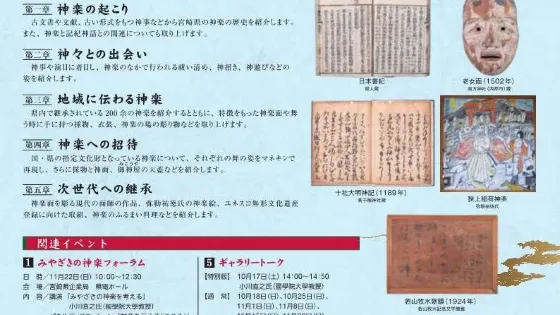 第一章 神楽の起こり
古文書や文献、古い形式をもつ神事などから宮崎県の神楽の歴史を紹介します。
また、神楽と記紀神話との関連についても取り上げます。
第二章 神々との出会い
神事や演目に着目し、神楽のなかで行われる祓い清め、神招き、神遊びなどの
姿を紹介します。
第三章 地域に伝わる神楽
県内で継承されている200余の神楽を紹介するとともに、特徴をもった神楽面や舞
う時に手に持つ採物、衣装、神楽の場の彫り物などを取り上げます。
第四章 神楽への招待
国・県の指定文化財となっている神楽について、それぞれの舞の姿をマネキンで
再現し、さらに採物と神面、御神屋の天蓋などを紹介します。
第五章 次世代への継承
神楽面を彫る現代の面師の作品、弥勒祐徳氏の神楽絵、ユネスコ無形文化遺産
登録に向けた取組、神楽のふるまい料理などを紹介します。
日本書紀
個人蔵
老女面(1502年)
十社大明神記(1189年)
狭上稲荷神楽
若山牧水歌額(1924年)
若山牧水記念文学館蔵
関連イベント
1 みやざきの神楽フォーラム
日 時/11月22日(日) 10:00~12:30
会 場/宮崎県企業局 県電ホール
内 容/講演「みやざきの神楽を考える」
小川直之氏(國學院大學教授)
5 ギャラリートーク
【特別版】 10月17日(土) 14:00~14:50
小川直之氏(國學院大學教授)
【通 常】 10月18日(日)、10月25日(日)、
11月1日(日)、11月8日(日)、